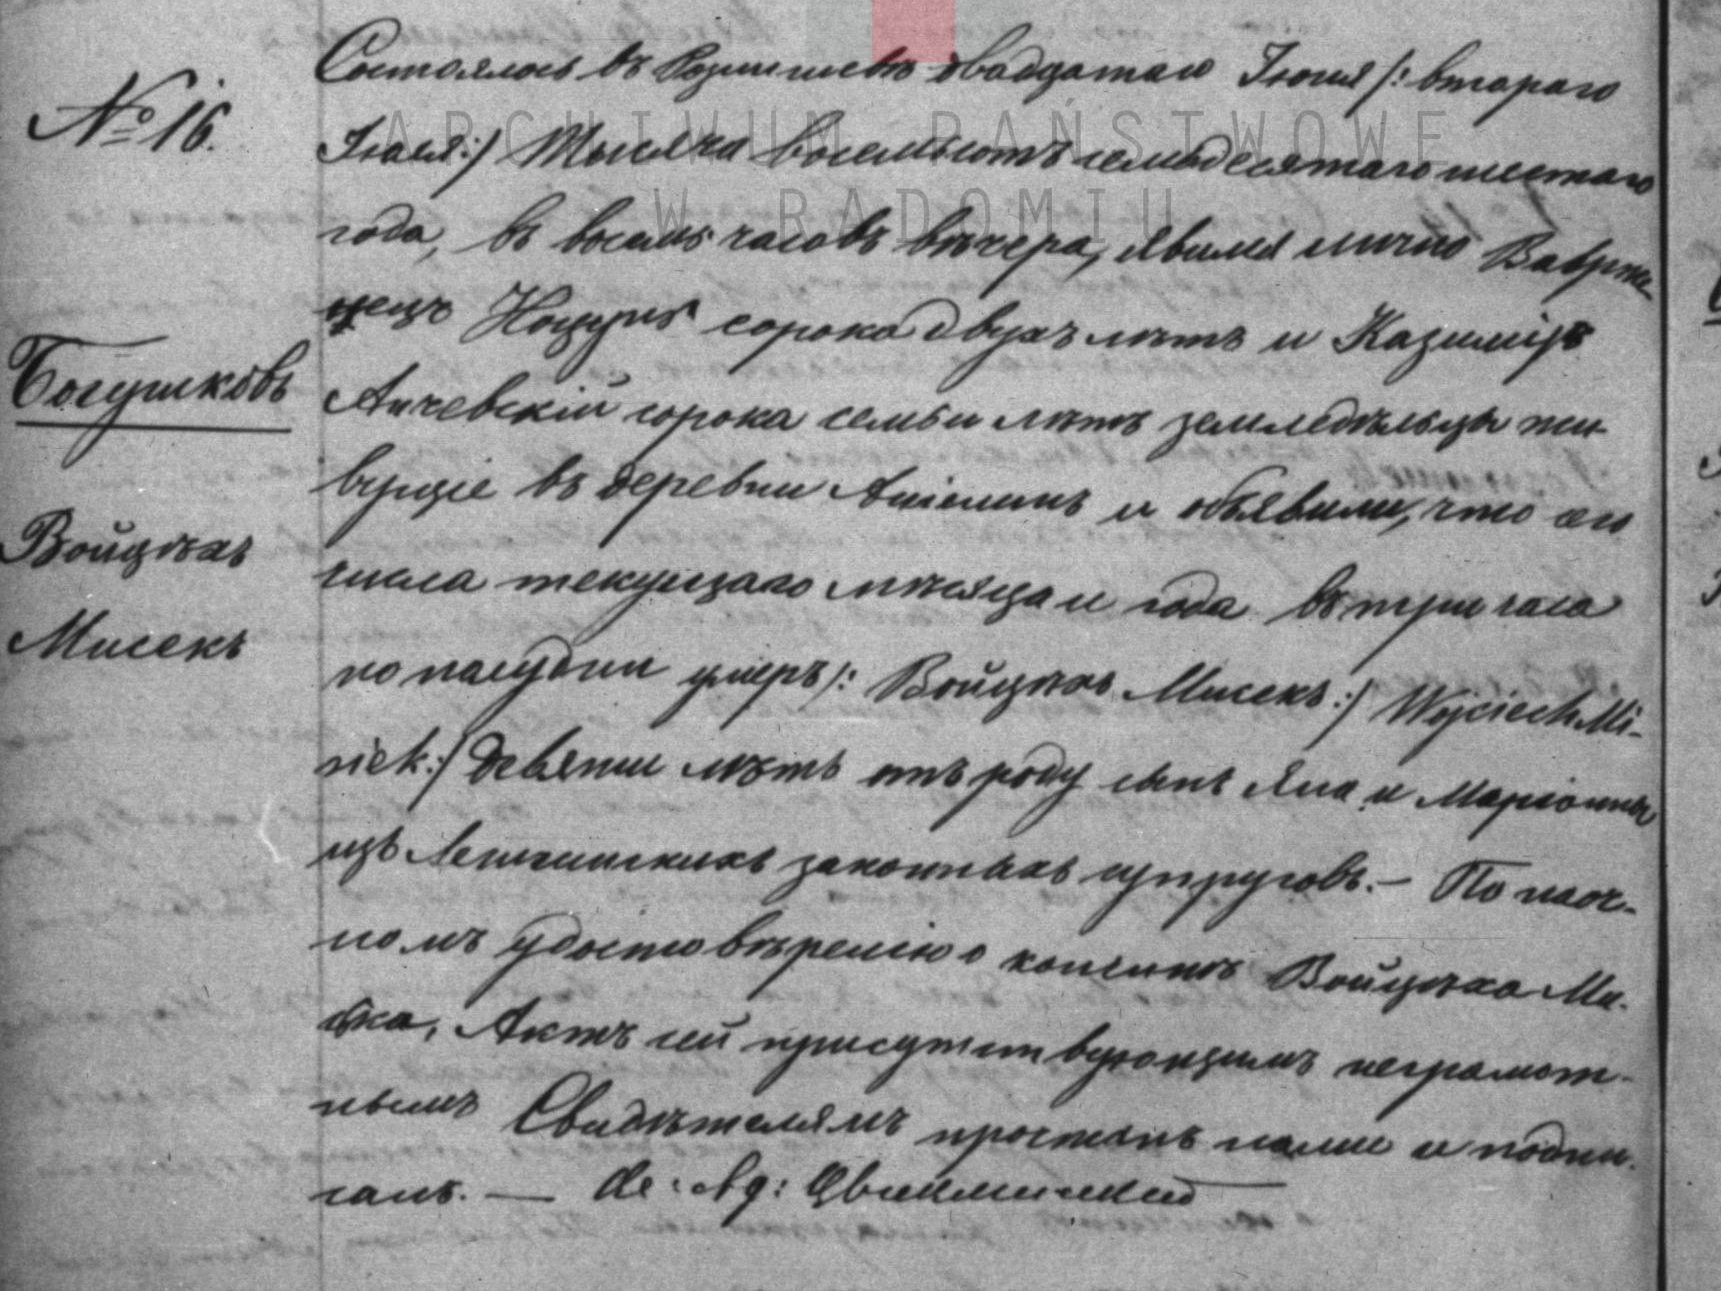 № 16.
Богушковъ
Войцѣхъ
Мисекъ
Состоялось въ двадцатаго Іюня /: втораго
Іюля :/ Тысяча восемьсотъ семьдесятаго шестаго
года, въ восемь часовъ вѣчера, явился лично Ваврже-
нецъ сорока двухъ лѣтъ и Казиміръ
сорока семьи лѣтъ земледѣльцы жи-
вущіе въ деревни и объявили, что сего
числа текущаго мѣсяца и года въ три часа
по полудни умеръ /: Войцѣхъ Мисекъ :/ Wojciech Mi-
siek :/ девяти лѣтъ отъ роду сынъ Яна и Маріянны
изъ законныхъ супруговъ. — По наоч-
номъ удостовѣреніи о кончинѣ Войцѣха Ми-
ска, Актъ сей присутствующимъ неграмот-
нымъ Свидѣтелямъ прочтенъ нами и подпи-
санъ. —
ARCHIWUM PAŃSTWOWE
W RADOMIU